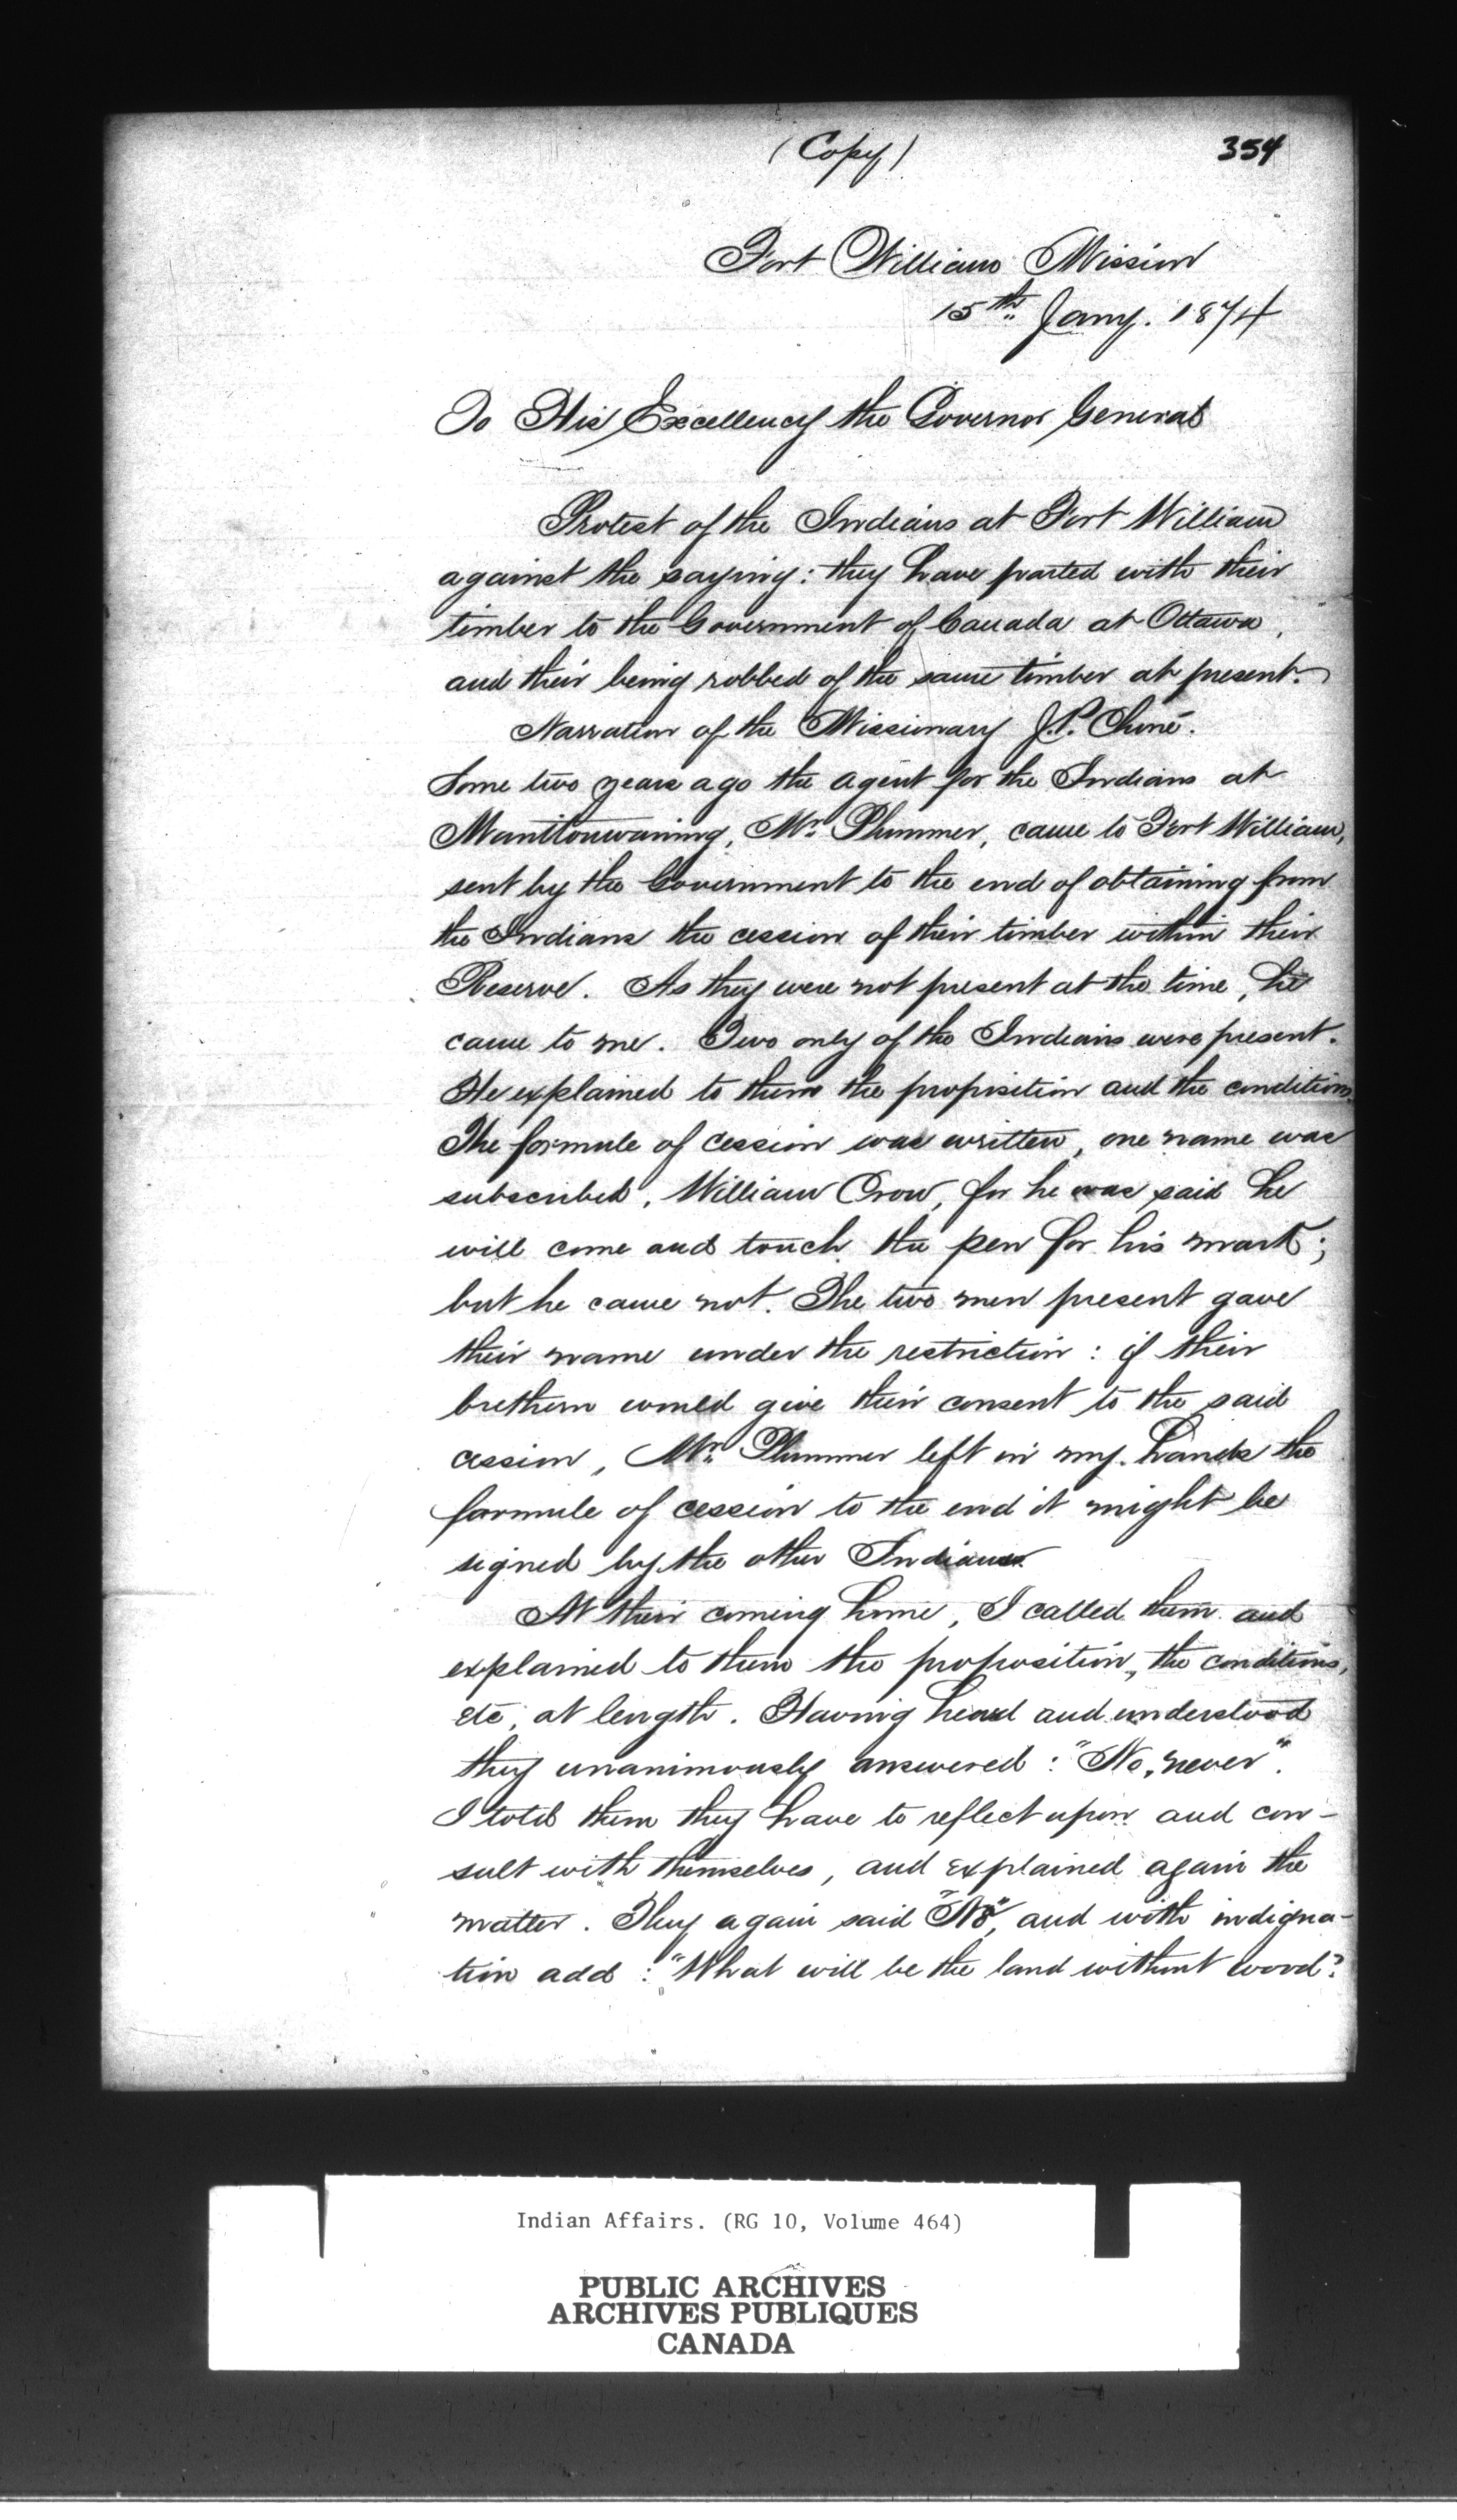 (Copy)
354
Fort William Mission
15th Jany. 1874
To His Excellency the Governor General
Protest of the Indians at Fort William
against the saying: they have parted with their
timber to the Government of Canada at Ottawa,
and their being robbed of the same timber at present.
Narration of the Missionary J.P. Choné.
Some two years ago the agent for the Indians at
Manitouwaning, Mr. Plummer, came to Fort William,
sent by the Government to the end of obtaining from
the Indians the cession of their timber within their
Reserve. As they were not present at the time, he
came to me. Two only of the Indians were present.
He explained to them the proposition and the conditions.
The formule of cession was written, one name was
subscribed, William Crow, for he was said he
will come and touch the pen for his mark;
but he came not. The two men present gave
their name under the restriction: if their
brethern would give their consent to the said
cession, Mr. Plummer left in my hands the
formule of cession to the end it might be
signed by the other Indians.
At their coming home, I called them and
explained to them the proposition, the conditions,
etc, at length. Having heard and understood
they unanimously answered: "No, never".
I told them they have to reflect upon and con-
sult with themselves, and explained again the
matter. They again said "No", and with indigna-
tion add: "What will be the land without wood?
Indian Affairs. (RG 10, Volume 464)
PUBLIC ARCHIVES
ARCHIVES PUBLIQUES
CANADA